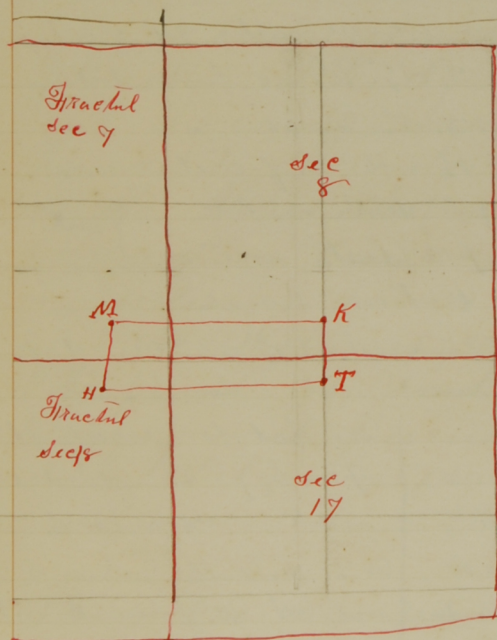 Fractnl
sec 7
sec
8
M
K
H
T
Fractnl
Sec 18
sec
17